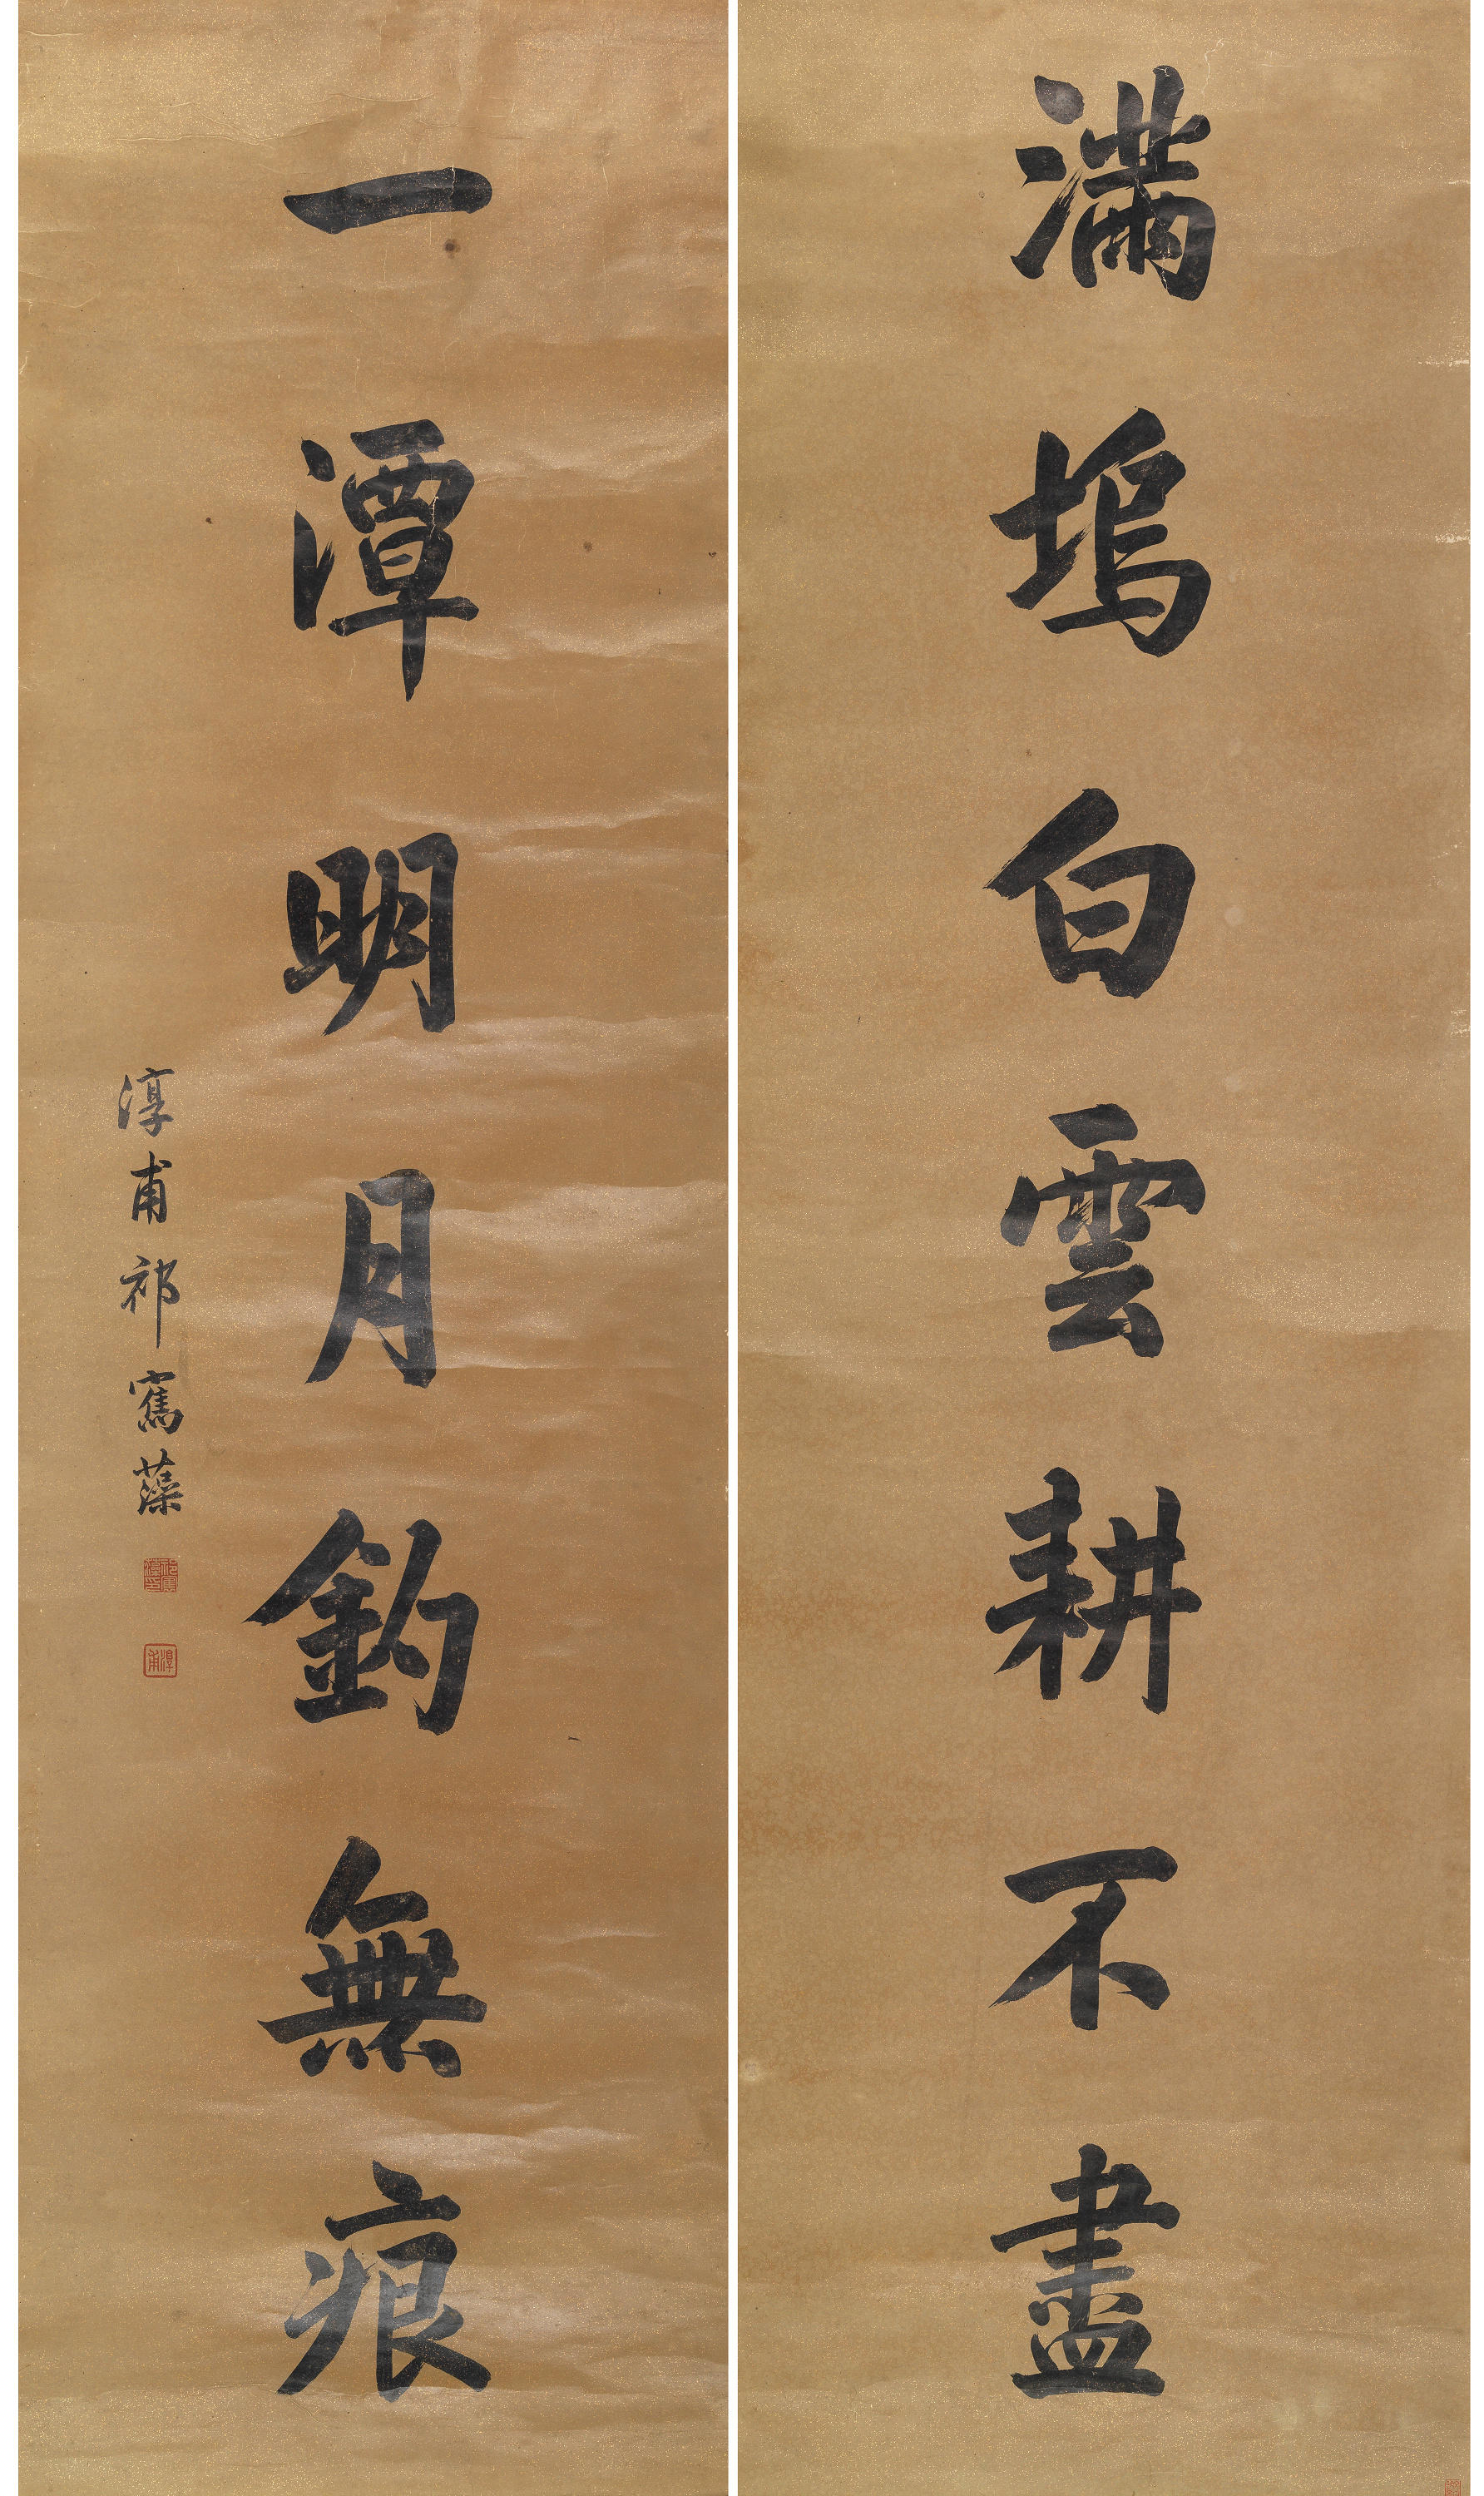 滿塢白雲耕不盡
一潭明月釣無痕
淳甫祁寯藻
淳甫